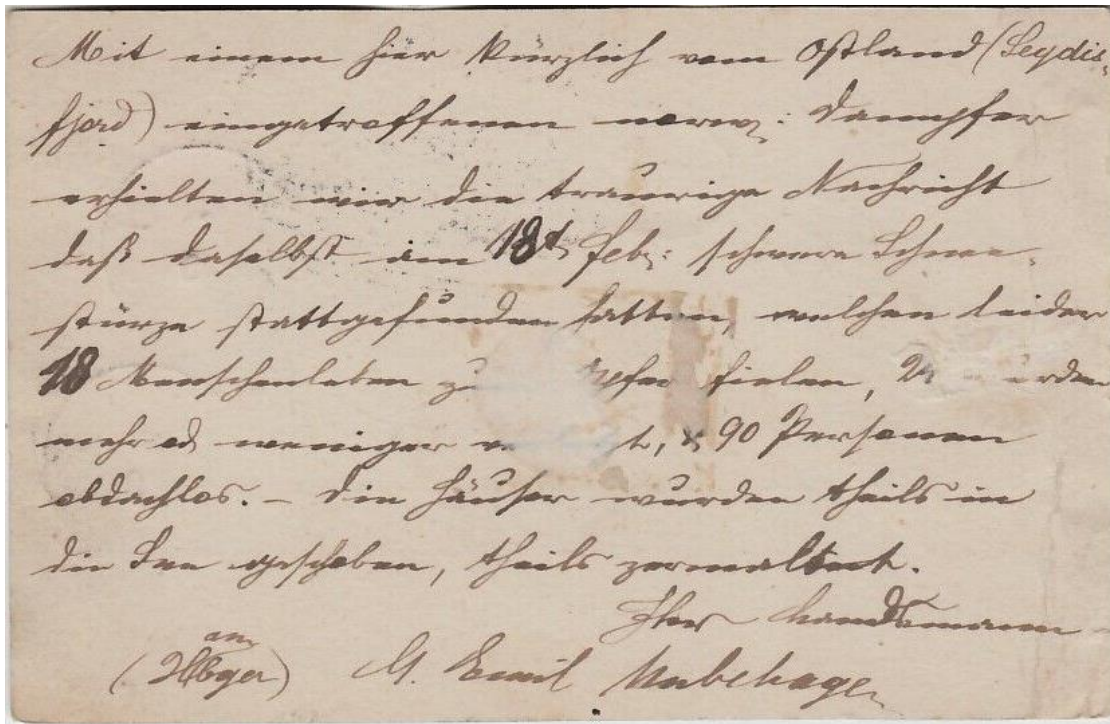 Mit einem hier kürzlich vom Ostland (Seydis-
fjord) eingetroffenen norw: Dampfer
erhielten wir die traurige Nachricht
daß daselbst am 18t Feb: schwere Schnee-
stürze stattgefunden hatten, welchen leider
18 Menschenleben zu fielen,
mehr od weniger 90 Personen
obdachlos. – Die Häuser wurden theils in
die See geschoben, theils zermalmt.
Ihr Landsmann
Emil Unbehagen